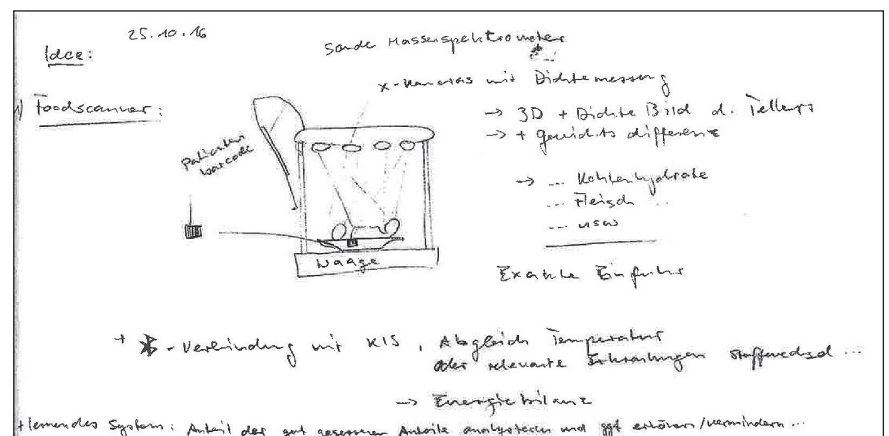 25.10.16
Idee:
Sonde Massenspektrometer
x-Kameras mit Dichtemessung
1) Foodscanner:
→ 3D + Dichte Bild d. Tellers
→ + gewichts differenz
Patienten barcode
→ ... Kohlenhydrate
... Fleisch ..
... usw
Waage
Exakte Einfuhr
+ -Verbindung mit KIS, Abgleich Temperatur
oder relevante Erkrankungen Stoffwechsel ...
→ Energiebilanz
+lernendes System: Anteil der gut gegessenen Anteile analysieren und ggf erhöhen/vermindern ...